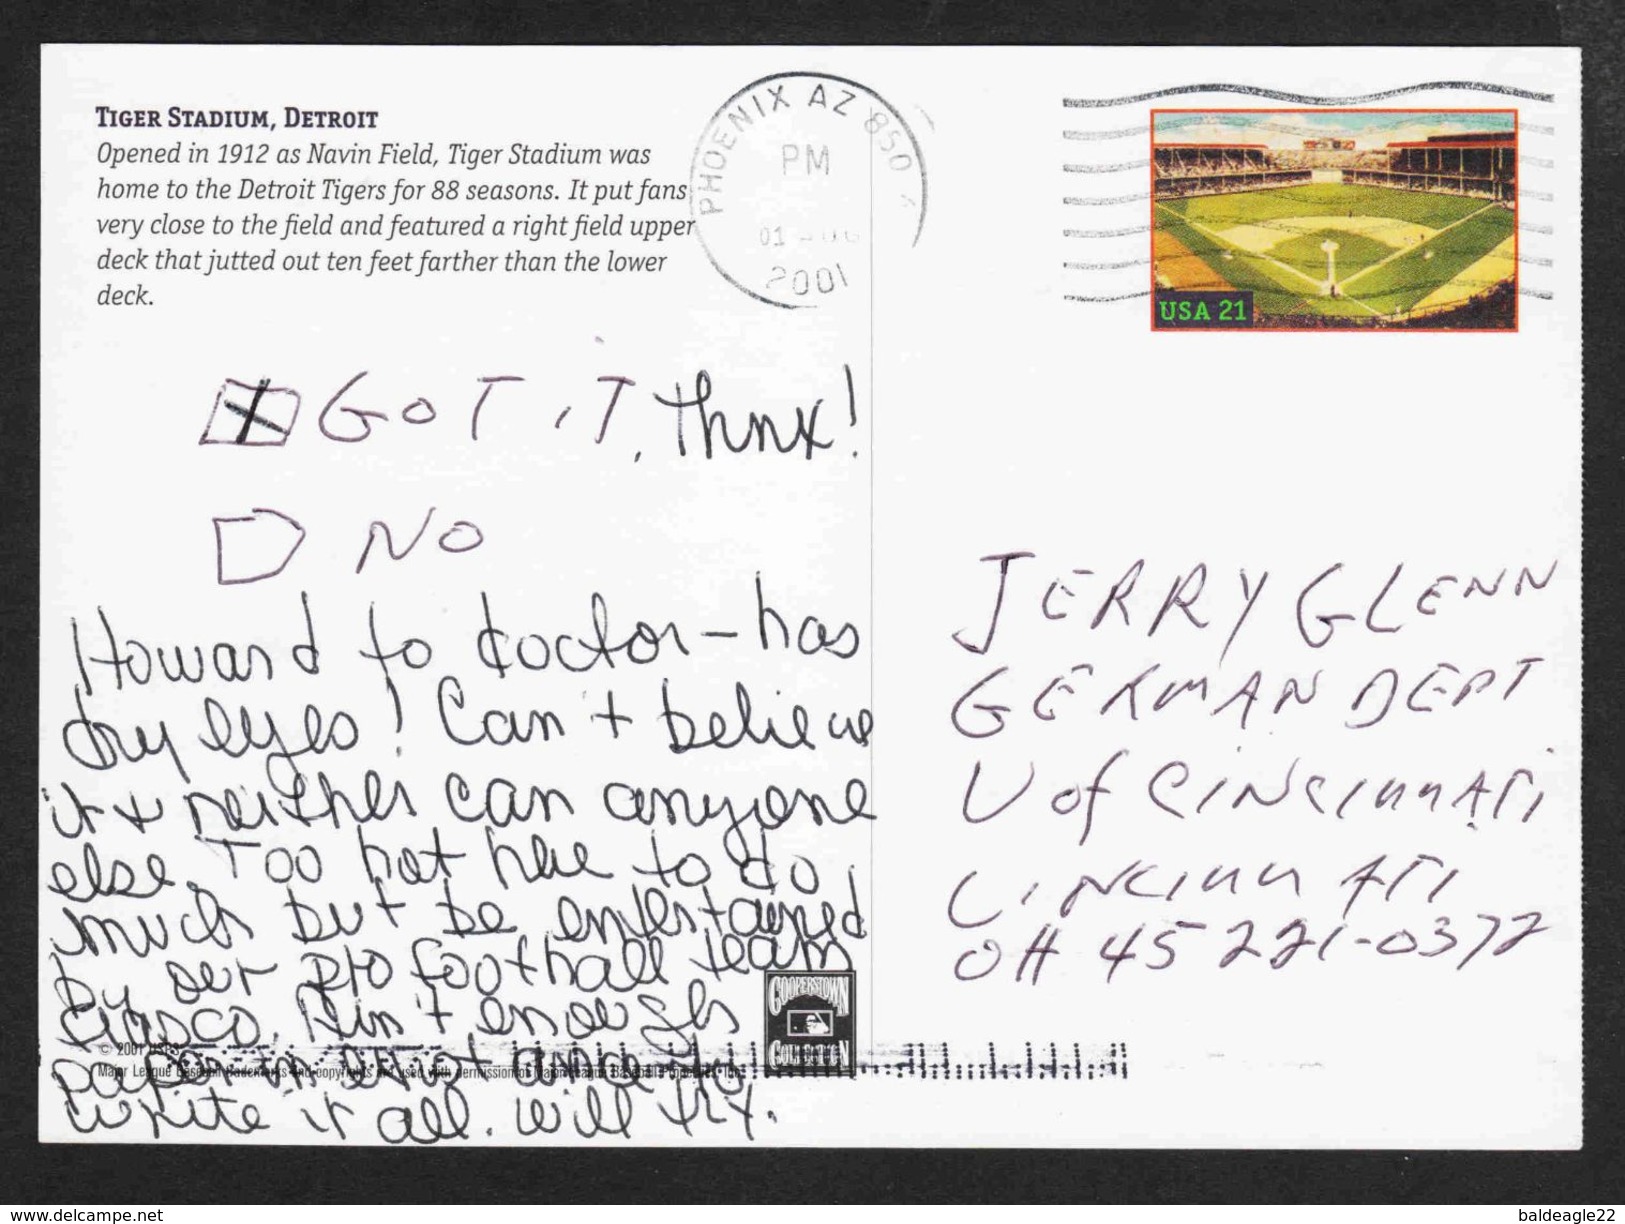 TIGER STADIUM, DETROIT
Opened in 1912 as Navin Field, Tiger Stadium was
home to the Detroit Tigers for 88 seasons. It put fans
very close to the field and featured a right field upper
deck that jutted out ten feet farther than the lower
deck.
PHOENIX AZ 850
PM
01
2001
USA 21
GOT IT, Thnx!
NO
Howard to doctor - has
dry eyes! Can't believe
it & neither can anyone
else. Too hot here to do
much but be entertained
by our pro football team
fiasco. Ain't enough
paper in
write it all. Will try.
JERRY GLENN
GERMAN DEPT
U of CINCINNATI
CINCINNATI
OH 45221-0372
COOPERSTOWN
COLLECTION
© 2001 USPS
Major League Baseball trademarks and copyrights are used with permission of Major League Baseball Properties, Inc.
www.delcampe.net
baldeagle22